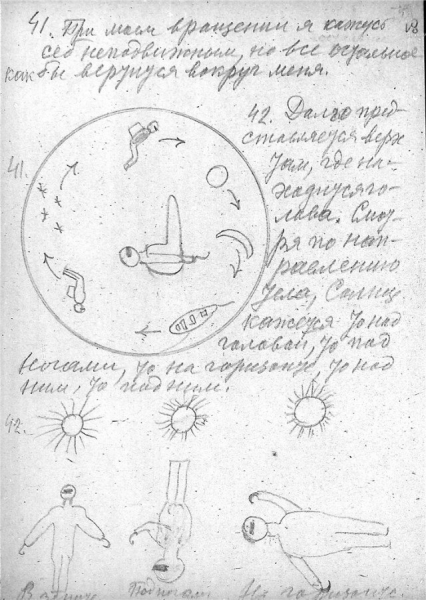 41. При моем вращении я кажусь
себе неподвижным, но все остальное
как бы вертится вокруг меня.
42. Далее пред
ставляется верх
там, где на-
ходится го-
лова. Смот-
ря по нап-
равлению
тела, Солнце
кажется то над
головой, то под
ногами, то на горизонте, то над
ним, то под ним.
41.
42.
В зените Под ногами На горизонте.